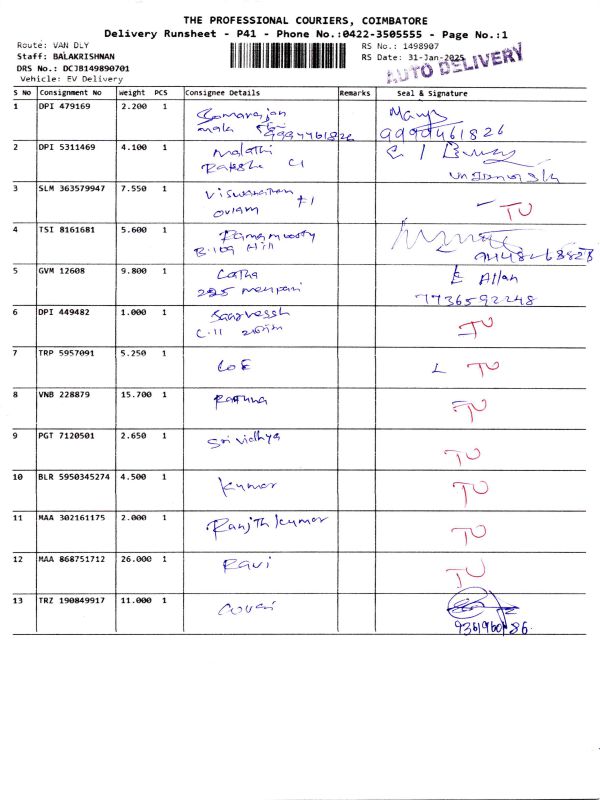 THE PROFESSIONAL COURIERS, COIMBATORE
Delivery Runsheet - P41 - Phone No.:0422-3505555 - Page No.:1
Route: VAN DLY
Staff: BALAKRISHNAN
DRS No.: DCJB149890701
Vehicle: EV Delivery
RS No.: 1498907
RS Date: 31-Jan-2025
AUTO DELIVERY
S No Consignment No Weight PCS Consignee Details Remarks Seal & Signature
1 DPI 479169 2.200 1
9994461826
2 DPI 5311469 4.100 1 Malathi
3 SLM 363579947 7.550 1 Viswanathan
oviam TU
4 TSI 8161681 5.600 1 Ramamurthy
Hill
5 GVM 12608 9.800 1 Latha
225
7736592248
6 DPI 449482 1.000 1 TU
C.11
7 TRP 5957091 5.250 1 TU
8 VNB 228879 15.700 1 TU
9 PGT 7120501 2.650 1 Srividhya TU
10 BLR 5950345274 4.500 1 kumar TU
11 MAA 302161175 2.000 1 Ranjithkumar TU
12 MAA 868751712 26.000 1 Ravi TU
13 TRZ 190849917 11.000 1